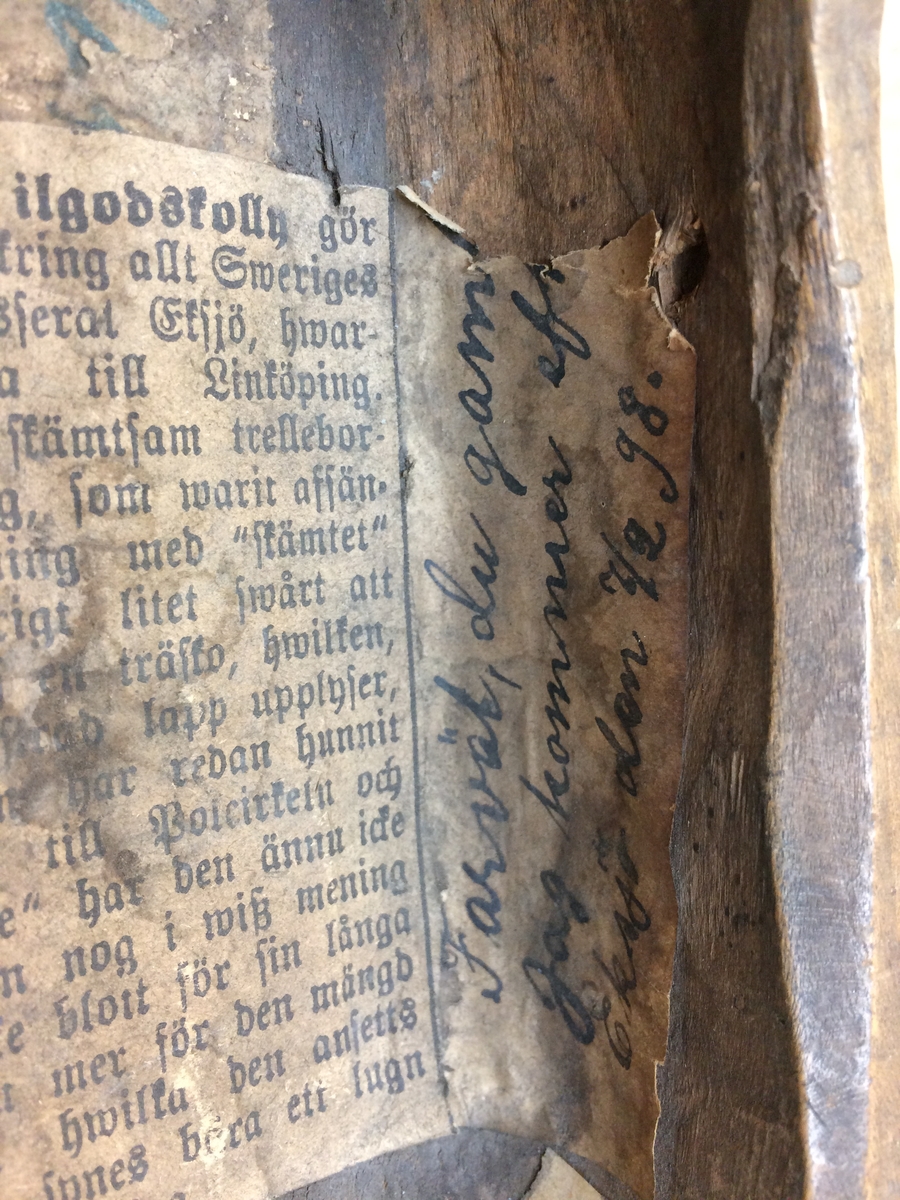 ilgodskolly gör
kring allt Sweriges
sserat Eksjö, hwar-
a till Linköping.
skämtsam trellebor-
g, som warit afsän-
ning med "skämtet"
rigt litet swårt att
en träsko, hwilken,
lapp upplyser,
har redan hunnit
till Polcirkeln och
e" har den ännu icke
n nog i wiß mening
e blott för sin långa
mer för den mängd
hwilka den ansetts
synes bära ett lugn
Farväl, du gam
Jag kommer eft
Eksjö den 7/2 98.